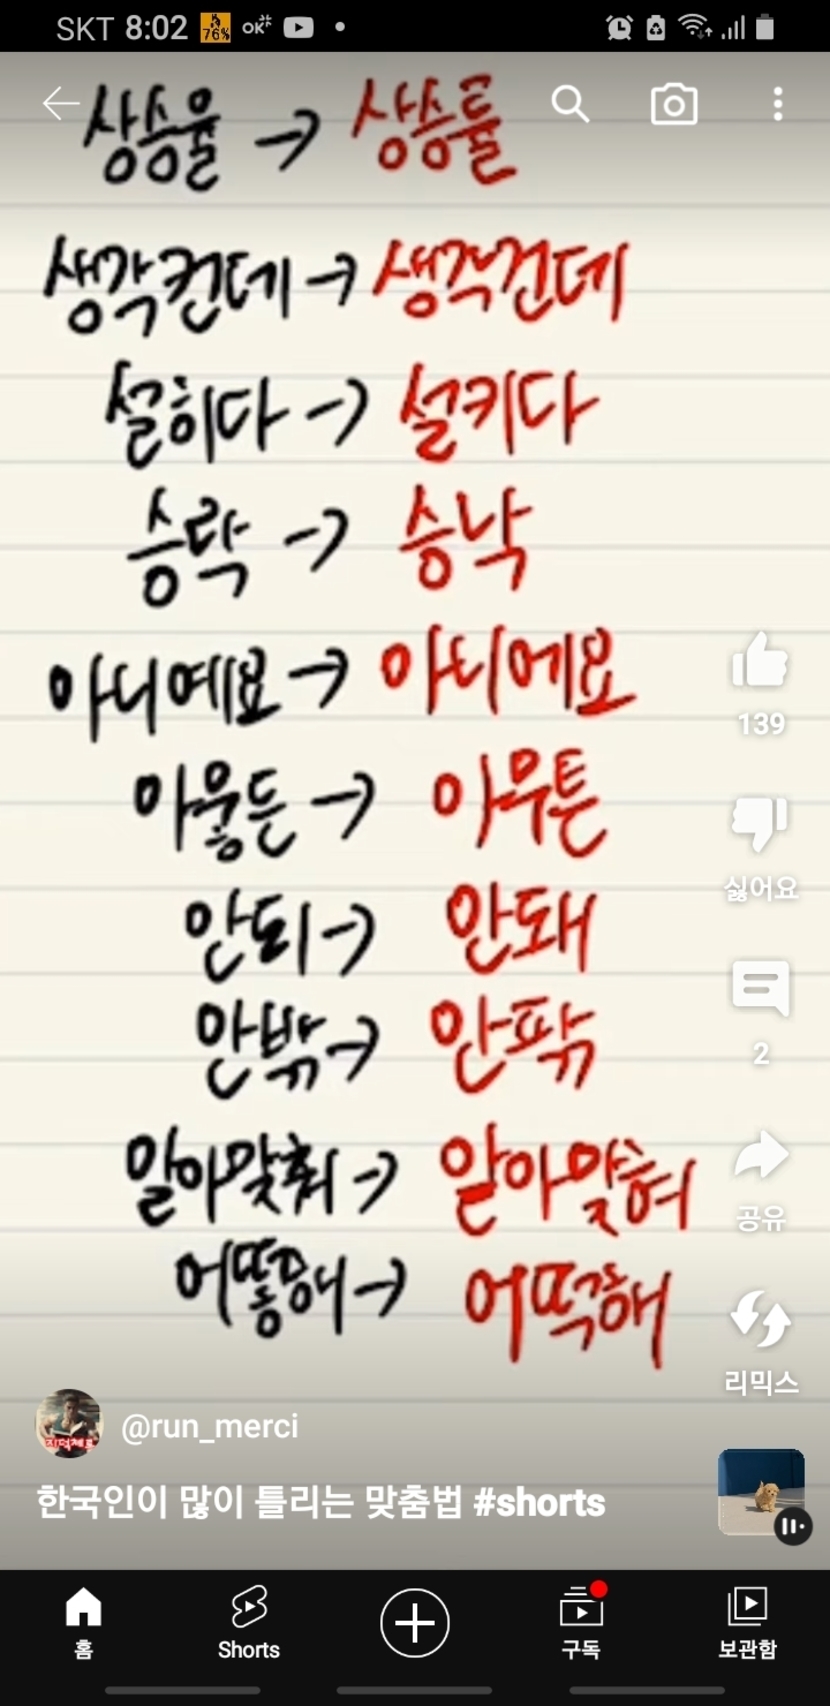 SKT 8:02 76% OK
상승율 → 상승률
생각컨데 → 생각건데
설히다 → 설키다
승락 → 승낙
아니예요 → 아니에요
아뭏든 → 아무튼
안되 → 안돼
안밖 → 안팎
알아맞춰 → 알아맞혀
어떻해 → 어떡해
139
싫어요
2
공유
리믹스
지덕체로
@run_merci
한국인이 많이 틀리는 맞춤법 #shorts
홈 Shorts 구독 보관함